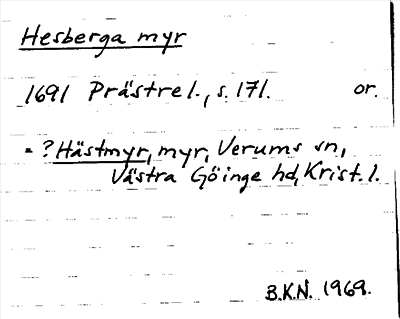 Hesberga myr
1691 Prästrel., s. 171. or.
= ? Hästmyr, myr, Verums sn,
Västra Göinge hd, Krist. l.
B.K.N. 1969.